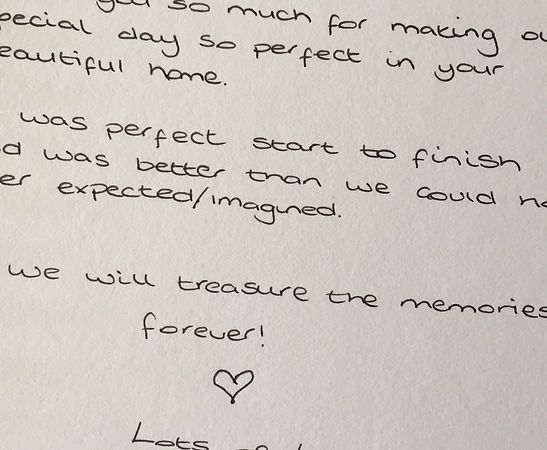 you so much for making ou
pecial day so perfect in your
eautiful home.
was perfect start to finish
d was better than we could ha
er expected/imagined.
we will treasure the memories
forever!
Lots